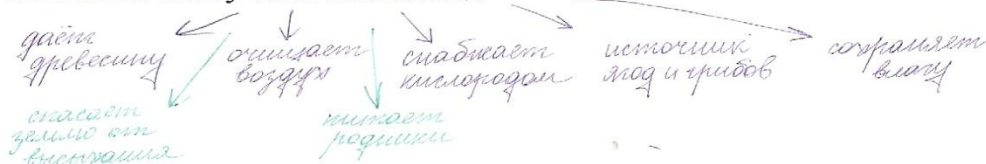 даёт
древесину
очищает
воздух
снабжает
кислородом
источник
ягод и грибов
сохраняет
влагу
спасает
землю от
высыхания
питает
родники